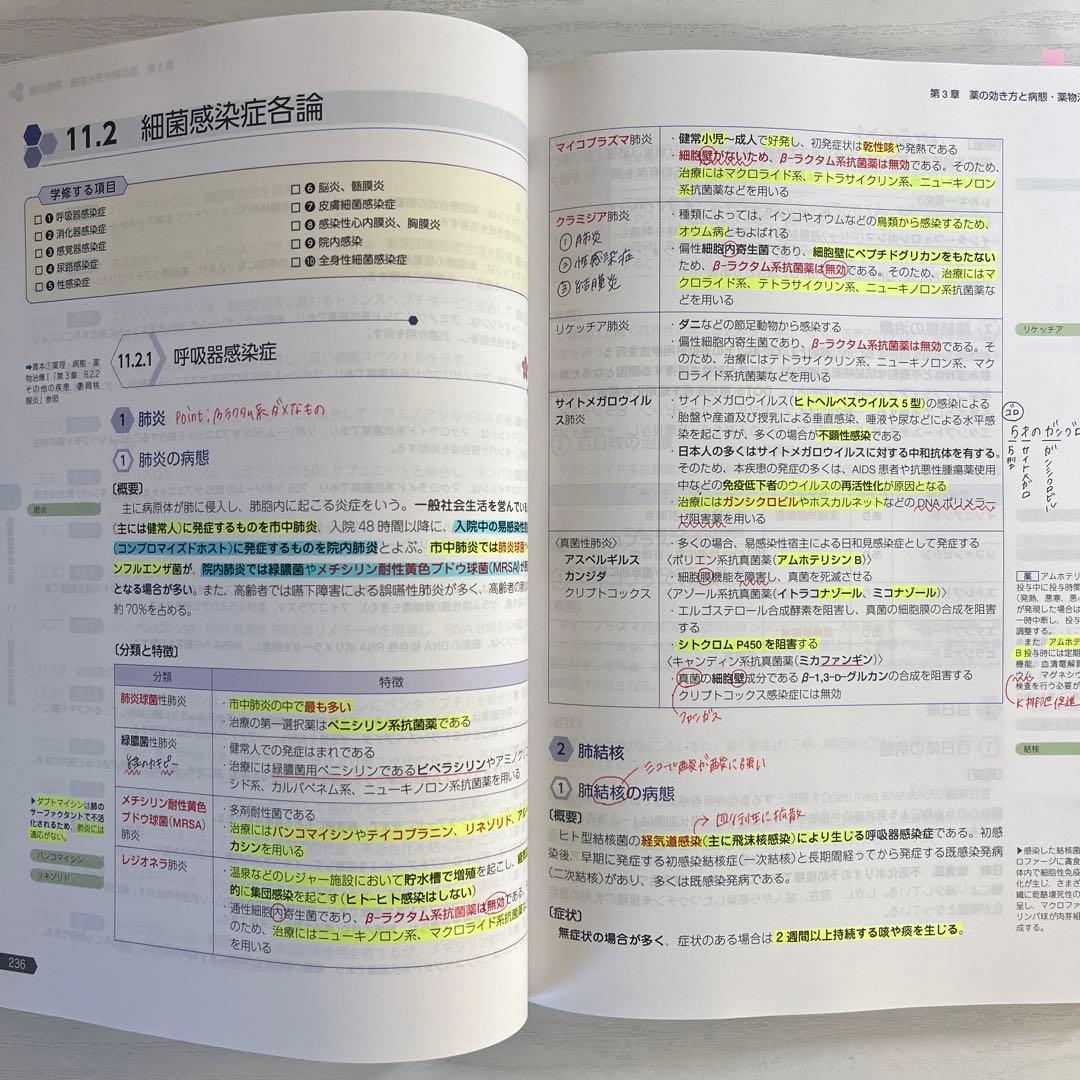 11.2 細菌感染症各論
学修する項目
□ ❶ 呼吸器感染症
□ ❷ 消化器感染症
□ ❸ 感覚器感染症
□ ❹ 尿路感染症
□ ❺ 性感染症
□ ❻ 脳炎、髄膜炎
□ ❼ 皮膚細菌感染症
□ ❽ 感染性心内膜炎、胸膜炎
□ ❾ 院内感染
□ ❿ 全身性細菌感染症
11.2.1 呼吸器感染症
➡青本①薬理・病態・薬
物治療Ⅰ「第3章 8.2.2
その他の疾患 ❼扁桃
腺炎」参照
1 肺炎 Point:βラクタム系ダメなもの
1 肺炎の病態
〔概要〕
肺炎
主に病原体が肺に侵入し、肺胞内に起こる炎症をいう。一般社会生活を営んでいる
(主には健常人)に発症するものを市中肺炎、入院48時間以降に、入院中の易感染性
(コンプロマイズドホスト)に発症するものを院内肺炎とよぶ。市中肺炎では肺炎球菌
ンフルエンザ菌が、院内肺炎では緑膿菌やメチシリン耐性黄色ブドウ球菌(MRSA)が
となる場合が多い。また、高齢者では嚥下障害による誤嚥性肺炎が多く、高齢者の
約70%を占める。
〔分類と特徴〕
分類 特徴
肺炎球菌性肺炎
・市中肺炎の中で最も多い
・治療の第一選択薬はペニシリン系抗菌薬である
緑膿菌性肺炎
・健常人での発症はまれである
・治療には緑膿菌用ペニシリンであるピペラシリンやアミノグリコ
シド系、カルバペネム系、ニューキノロン系抗菌薬を用いる
メチシリン耐性黄色
ブドウ球菌(MRSA)
肺炎
・多剤耐性菌である
・治療にはバンコマイシンやテイコプラニン、リネゾリド、アル
カシンを用いる
▶ダプトマイシンは肺の
サーファクタントで不活
化されるため、肺炎には
適応がない。
バンコマイシン
リネゾリド
レジオネラ肺炎
・温泉などのレジャー施設において貯水槽で増殖を起こし、
的に集団感染を起こす(ヒト-ヒト感染はしない)
・通性細胞内寄生菌であり、β-ラクタム系抗菌薬は無効である。
のため、治療にはニューキノロン系、マクロライド系抗菌薬
を用いる
236
第3章 薬の効き方と病態・薬物
マイコプラズマ肺炎
・健常小児～成人で好発し、初発症状は乾性咳や発熱である
・細胞壁がないため、β-ラクタム系抗菌薬は無効である。そのため、
治療にはマクロライド系、テトラサイクリン系、ニューキノロン
系抗菌薬などを用いる
クラミジア肺炎
① 肺炎
② 性感染症
③ 結膜炎
・種類によっては、インコやオウムなどの鳥類から感染するため、
オウム病ともよばれる
・偏性細胞内寄生菌であり、細胞壁にペプチドグリカンをもたない
ため、β-ラクタム系抗菌薬は無効である。そのため、治療にはマ
クロライド系、テトラサイクリン系、ニューキノロン系抗菌薬な
どを用いる
リケッチア肺炎
・ダニなどの節足動物から感染する
・偏性細胞内寄生菌であり、β-ラクタム系抗菌薬は無効である。そ
のため、治療にはテトラサイクリン系、ニューキノロン系、マク
ロライド系抗菌薬などを用いる
リケッチア
サイトメガロウイル
ス肺炎
・サイトメガロウイルス(ヒトヘルペスウイルス5型)の感染による
・胎盤や産道及び授乳による垂直感染、唾液や尿などによる水平感
染を起こすが、多くの場合が不顕性感染である
・日本人の多くはサイトメガロウイルスに対する中和抗体を有する。
そのため、本疾患の発症の多くは、AIDS患者や抗悪性腫瘍薬使用
中などの免疫低下者のウイルスの再活性化が原因となる
・治療にはガンシクロビルやホスカルネットなどのDNAポリメラー
ゼ阻害薬を用いる
5才のガシグロ
5型
サイトメガロ
ガンシクロビル
〈真菌性肺炎〉
アスペルギルス
カンジダ
クリプトコックス
・多くの場合、易感染性宿主による日和見感染症として発症する
〈ポリエン系抗真菌薬(アムホテリシンB)〉
・細胞膜機能を障害し、真菌を死滅させる
〈アゾール系抗真菌薬(イトラコナゾール、ミコナゾール)〉
・エルゴステロール合成酵素を阻害し、真菌の細胞膜の合成を阻害
する
・シトクロムP450を阻害する
〈キャンディン系抗真菌薬(ミカファンギン)〉
・真菌の細胞壁成分であるβ-1,3-D-グルカンの合成を阻害する
・クリプトコックス感染症には無効
ファンガス
薬 アムホテリシ
投与中に投与時
(発熱、悪寒、悪
が発現した場合は
一時中断し、投与
調整する。
また、アムホテ
B投与時には定期
機能、血清電解
ウム、マグネシウ
検査を行う必要が
K排泄促進
2 肺結核
1 肺結核の病態
〔概要〕
ヒト型結核菌の経気道感染(主に飛沫核感染)により生じる呼吸器感染症である。初感
染後、早期に発症する初感染結核症(一次結核)と長期間経ってから発症する既感染発病
(二次結核)があり、多くは既感染発病である。
〔症状〕
無症状の場合が多く、症状のある場合は2週間以上持続する咳や痰を生じる。
結核
▶感染した結核菌
ロファージに貪食
体内で細胞性免疫
化が生じ、さまざ
織に乾酪壊死性の
呈し、マクロファー
リンパ球が肉芽組
成する。